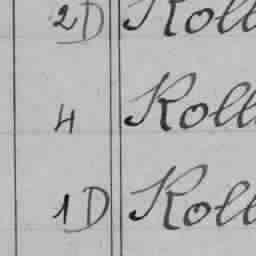 2D Koll
4 Koll
1D Koll